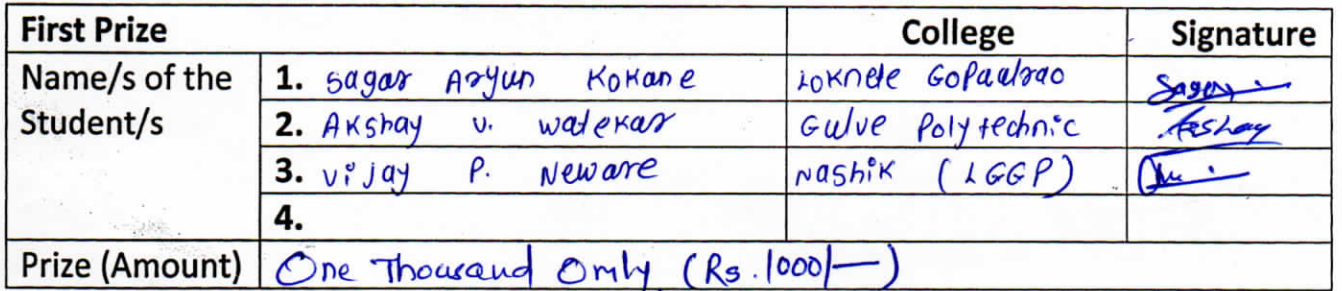 First Prize College Signature
Name/s of the 1. Sagar Arjun Kokane Loknete Gopalrao Sagar
Student/s 2. Akshay v. walekar Gulve Polytechnic Akshay
3. vijay P. Neware Nashik (LGGP)
4.
Prize (Amount) One Thousand Only (Rs. 1000/—)